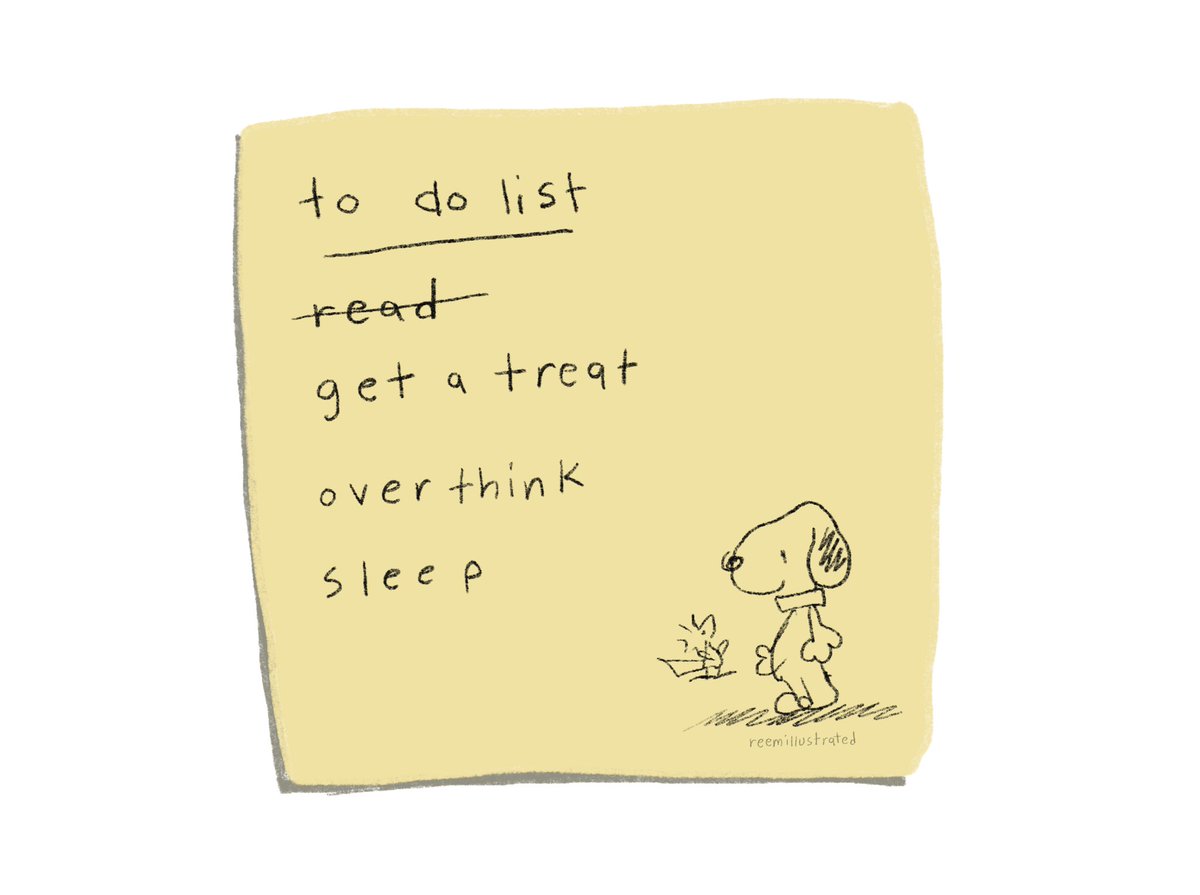 to do list
read
get a treat
overthink
sleep
reemillustrated